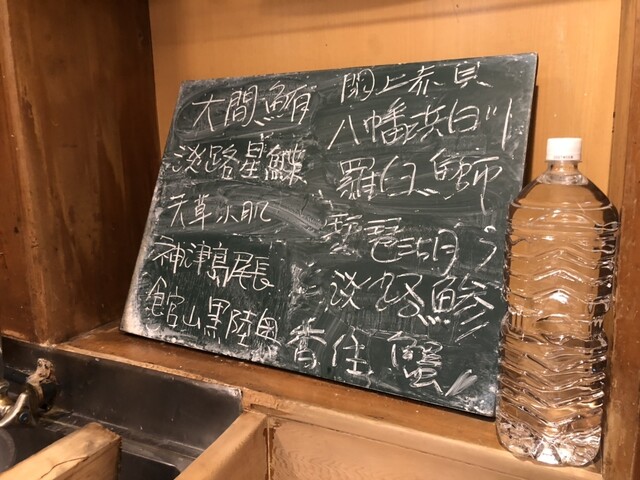 大間 鮪
淡路星鰈
天草小肌
神津島尾長
館山黒陸奥
閖上赤貝
八幡浜白川
羅臼鰤
琵琶
淡路鯵
香住蟹